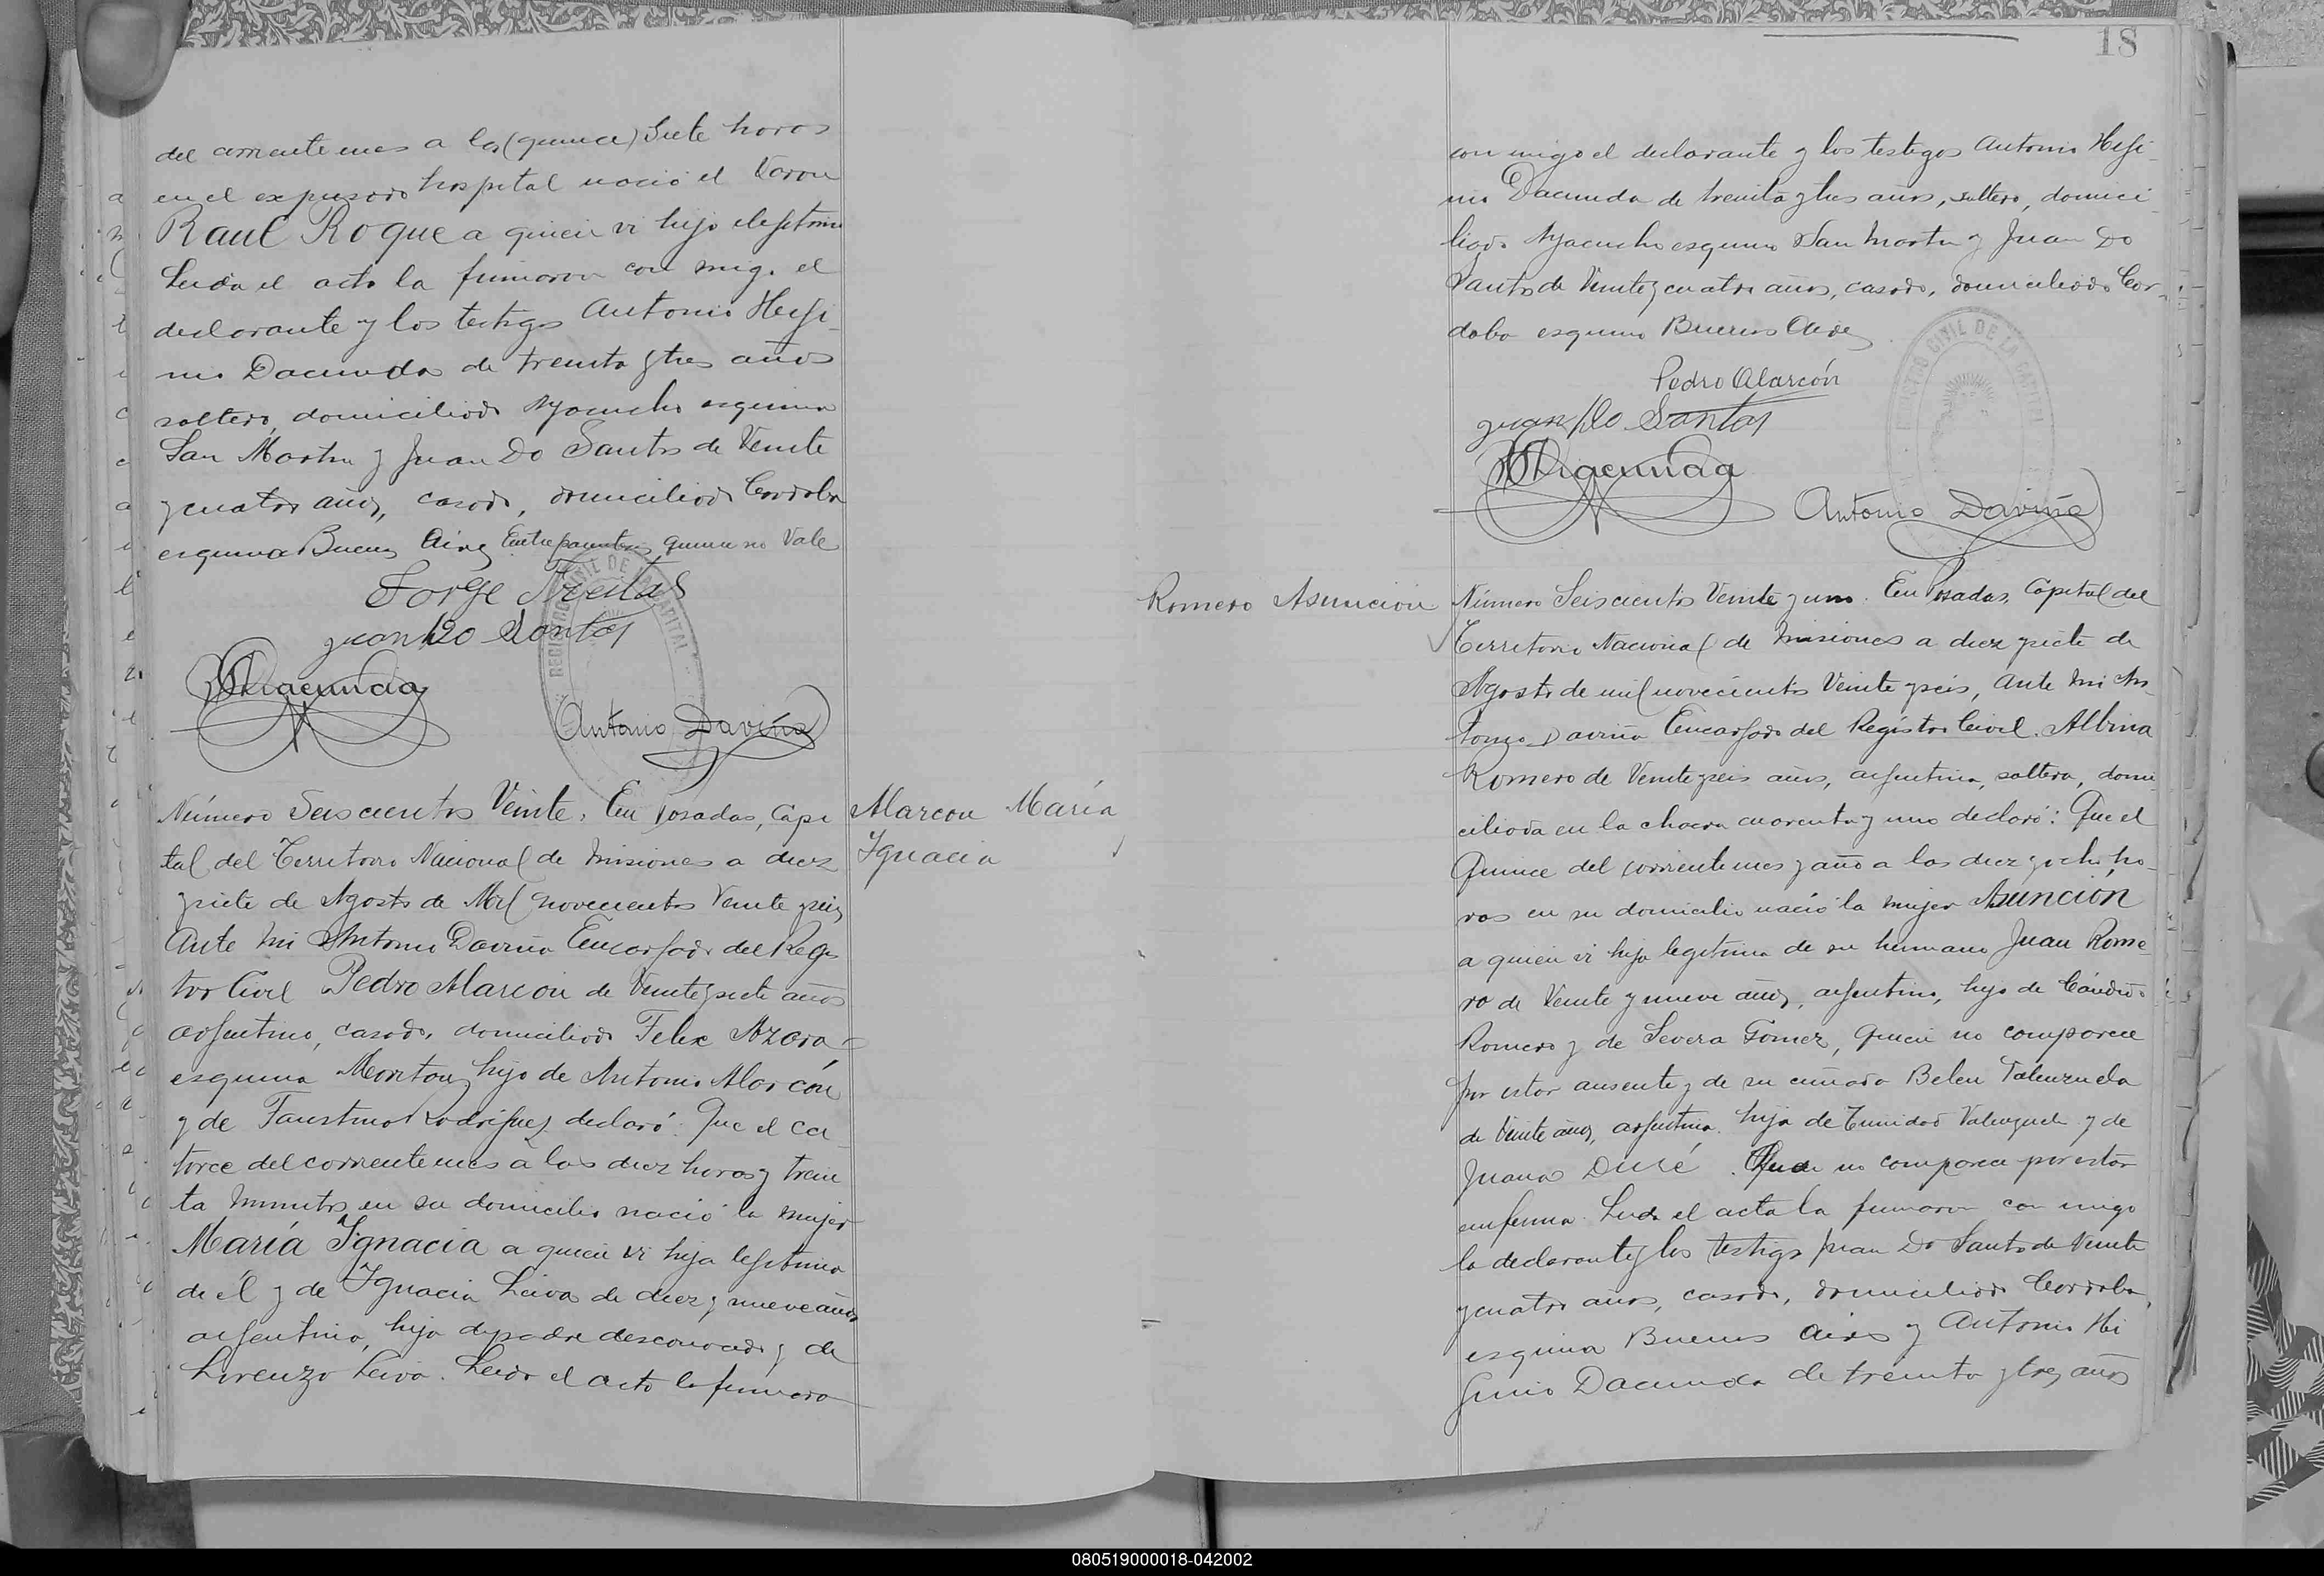 del corriente mes a las (quince) Siete horas
en el expresado hospital nació el Varon
Raul Roque a quien vi hijo ilegitimo
Leida el acta la firmaron con migo el
declarante y los testigos Antonio Higi-
nio Dacunda de treinta y tres años
soltero, domiciliado Ayacucho esquina
San Martin y Juan Do Santos de Veinte
y cuatro años, casado, domiciliado Cordoba
esquina Buenos Aires Entre parentesis quince no Vale
Jorge Freitas
Juan Do Santos
REGISTRO CIVIL DE LA CAPITAL
Antonio Daviña
Número Seiscientos Veinte. En Posadas, Capi
Alarcon María
Ignacia
tal del Territorio Nacional de Misiones a diez
y siete de Agosto de Mil novecientos Veinte y seis,
Ante Mi Antonio Daviña Encargado del Regis
tro Civil Pedro Alarcon de Veinte y siete años
argentino, casado, domiciliado Felix Azara
esquina hijo de Antonio Alarcón
y de Faustina Rodriguez declaró: Que el ca
torce del corriente mes a las diez horas y trein
ta minutos en su domicilio nació la mujer
María Ignacia a quien vi hija legitima
de él y de Ignacia Leiva de diez y nueve años
argentina, hija de padre desconocido y de
Lorenza Leiva. Leida el acta la firmaron
18
con migo el declarante y los testigos Antonio Higi-
nio Dacunda de treinta y tres años, soltero, domici-
liado Ayacucho esquina San Martin y Juan Do
Santos de Veinte y cuatro años, casado, domiciliado Cor-
doba esquina Buenos Aires
Pedro Alarcón
Juan Do Santos
REGISTRO CIVIL DE LA CAPITAL
Antonio Daviña
Romero Asuncion
Número Seiscientos Veinte y uno. En Posadas, Capital del
Territorio Nacional de Misiones a diez y siete de
Agosto de mil novecientos Veinte y seis, Ante Mi An-
tonio Daviña Encargado del Registro Civil. Albina
Romero de Veinte y seis años, argentina, soltera, domi-
ciliada en la chacra cuarenta y uno declaró: Que el
Quince del corriente mes y año a las diez y ocho ho-
ras en su domicilio nació la mujer Asunción
a quien vi hija legitima de su hermano Juan Rome-
ro de Veinte y nueve años, argentino, hijo de Cándido
Romero y de Severa Gomez, quien no comparece
por estar ausente y de su cuñada Belen Valenzuela
de Veinte años, argentina. hija de Trinidad Valenzuela y de
Juana Ducé. Que no comparece por estar
enferma. Leida el acta la firmaron con migo
la declarante y los testigos Juan Do Santos de Veinte
y cuatro años, casado, domiciliado Cordoba,
esquina Buenos Aires y Antonio Hi
ginio Dacunda de treinta y tres años
080519000018-042002